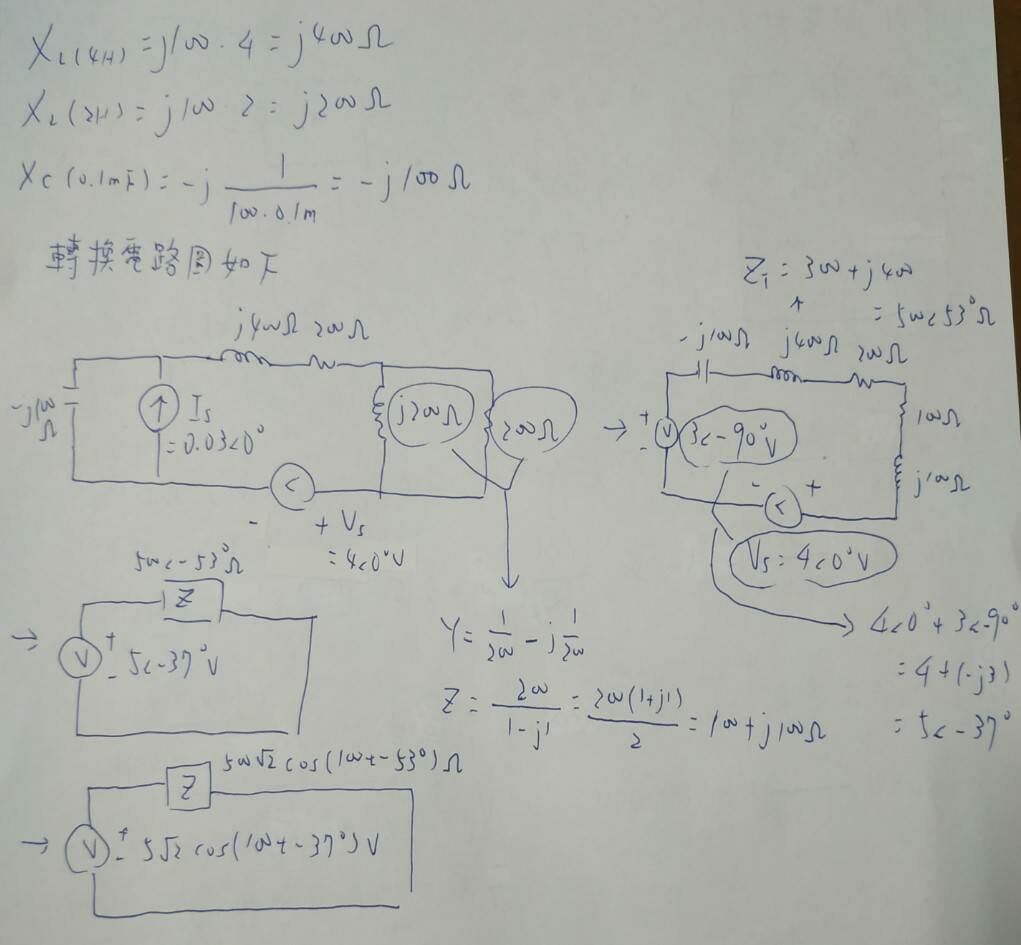 X_L(4H) = j100 · 4 = j400Ω
X_L(2H) = j100 · 2 = j200Ω
X_C(0.1mF) = -j 1/(100·0.1m) = -j100Ω
轉換電路圖如下
j400Ω 200Ω
-j100Ω
I_s
= 0.03<0°
j200Ω
200Ω
- + V_s
= 4<0°V
Z_T = 300 + j400
= 500<53°Ω
-j100Ω j400Ω 200Ω
→ + V - 3<-90°V
100Ω
j100Ω
- +
V_s = 4<0°V
→ 4<0° + 3<-90°
= 4 + (-j3)
= 5<-37°
Y = 1/200 - j 1/200
Z = 200/(1-j1) = 200(1+j1)/2 = 100 + j100Ω
500<-53°Ω
Z
→ V + - 5<-37°V
500√2 cos(100t-53°)Ω
Z
→ V + - 5√2 cos(100t-37°)V